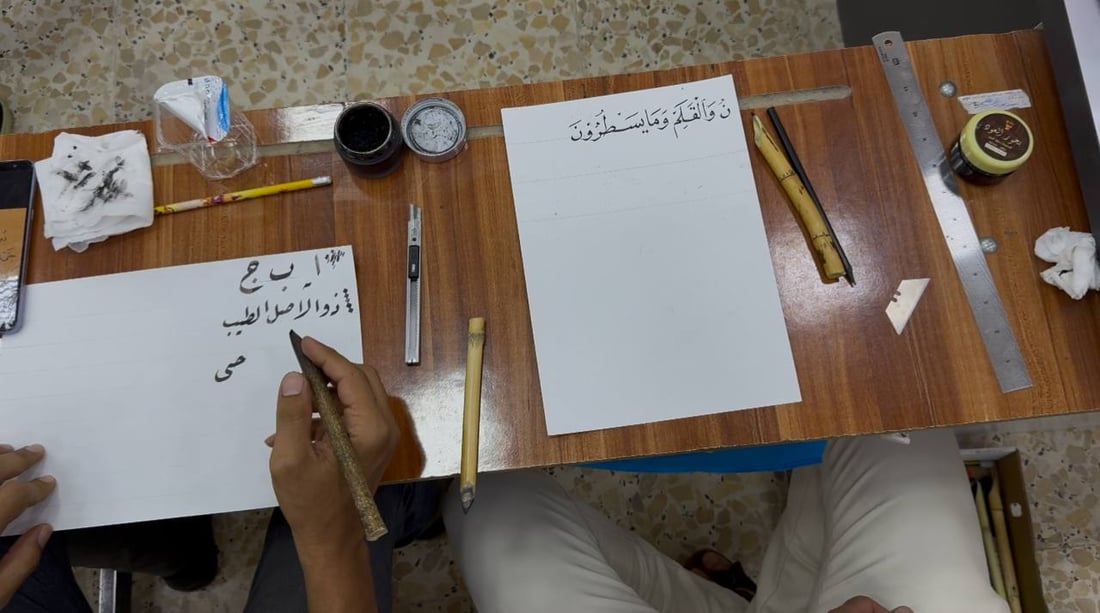 نۤ وَالْقَلَمِ وَمَا يَسْطُرُونَ
ا ب ج
ذوالاصل الطيب
حى